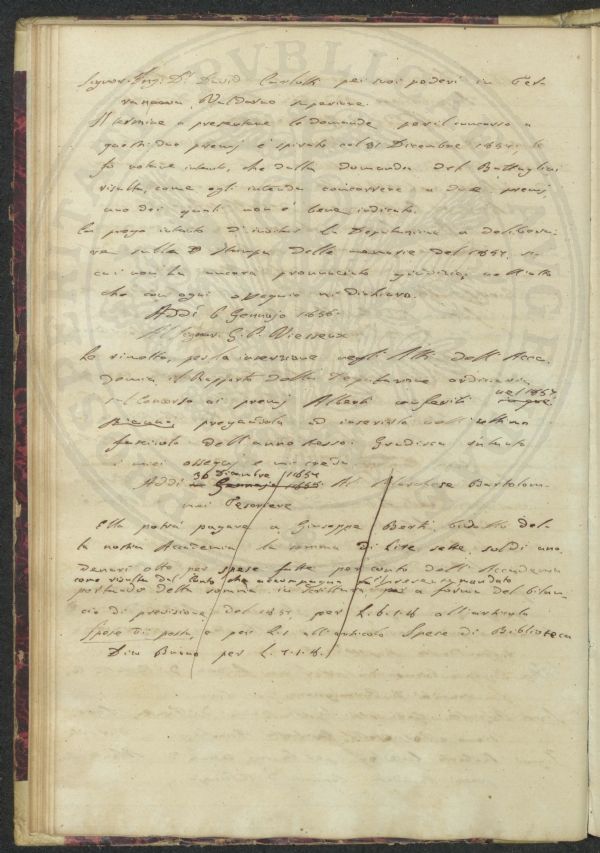 Signor Ing. Dr. David Carlotti pei suoi poderi in Ter
ranuova, Valdarno superiore.
Il termine a presentare le domande per il concorso a
questi due premj è spirato col 31 Dicembre 1854; le
fo notare intanto, che dalla domanda del Battaglini
risulta, come egli intenda concorrere a due premj,
uno dei quali non è bene indicato.
La prego intanto d'invitar la Deputazione a delibera
re sulla Stampa delle memorie del 1854, su
cui non ha ancora pronunciato giudizio;
che con ogni ossequio mi dichiaro.
Addì 6 Gennajo 1855.
Al Signor G. P. Vieusseux
Le rimetto, per la inserzione negli Atti dell'Acca
demia il Rapporto della Deputazione ordinaria
sul Concorso ai premj Alberti conferiti nel 1854
pregandola ad inserirlo nell'ultimo
fascicolo dell'anno stesso. Gradisca intanto
i miei ossequj e mi creda
Addì 30 Dicembre 1854 Gennajo 1855 Al Marchese Bartolom
mei Tesoriere
Ella potrà pagare a Giuseppe Berti, bidello del
la nostra Accademia la somma di Lire sette, soldi uno
denari otto per spese fatte per conto dell'Accademia
come risulta dal Conto che accompagna il presente mandato
portando detta somma in scrittura a forma del bilan
cio di previsione del 1854 per L. 6.1.8 all'articolo
Spese di posta, e per L. 1 all'articolo Spese di Biblioteca
Dico Buono per L. 7.1.8.